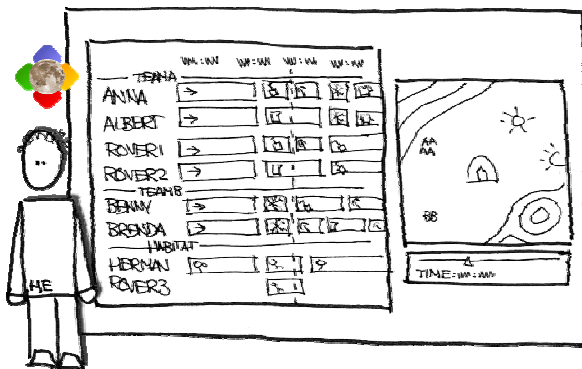 TEAM A
ANNA
ALBERT
ROVER1
ROVER2
TEAM B
BENNY
BRENDA
HABITAT
HERMAN
ROVER3
AA
AA
BB
TIME:
HE